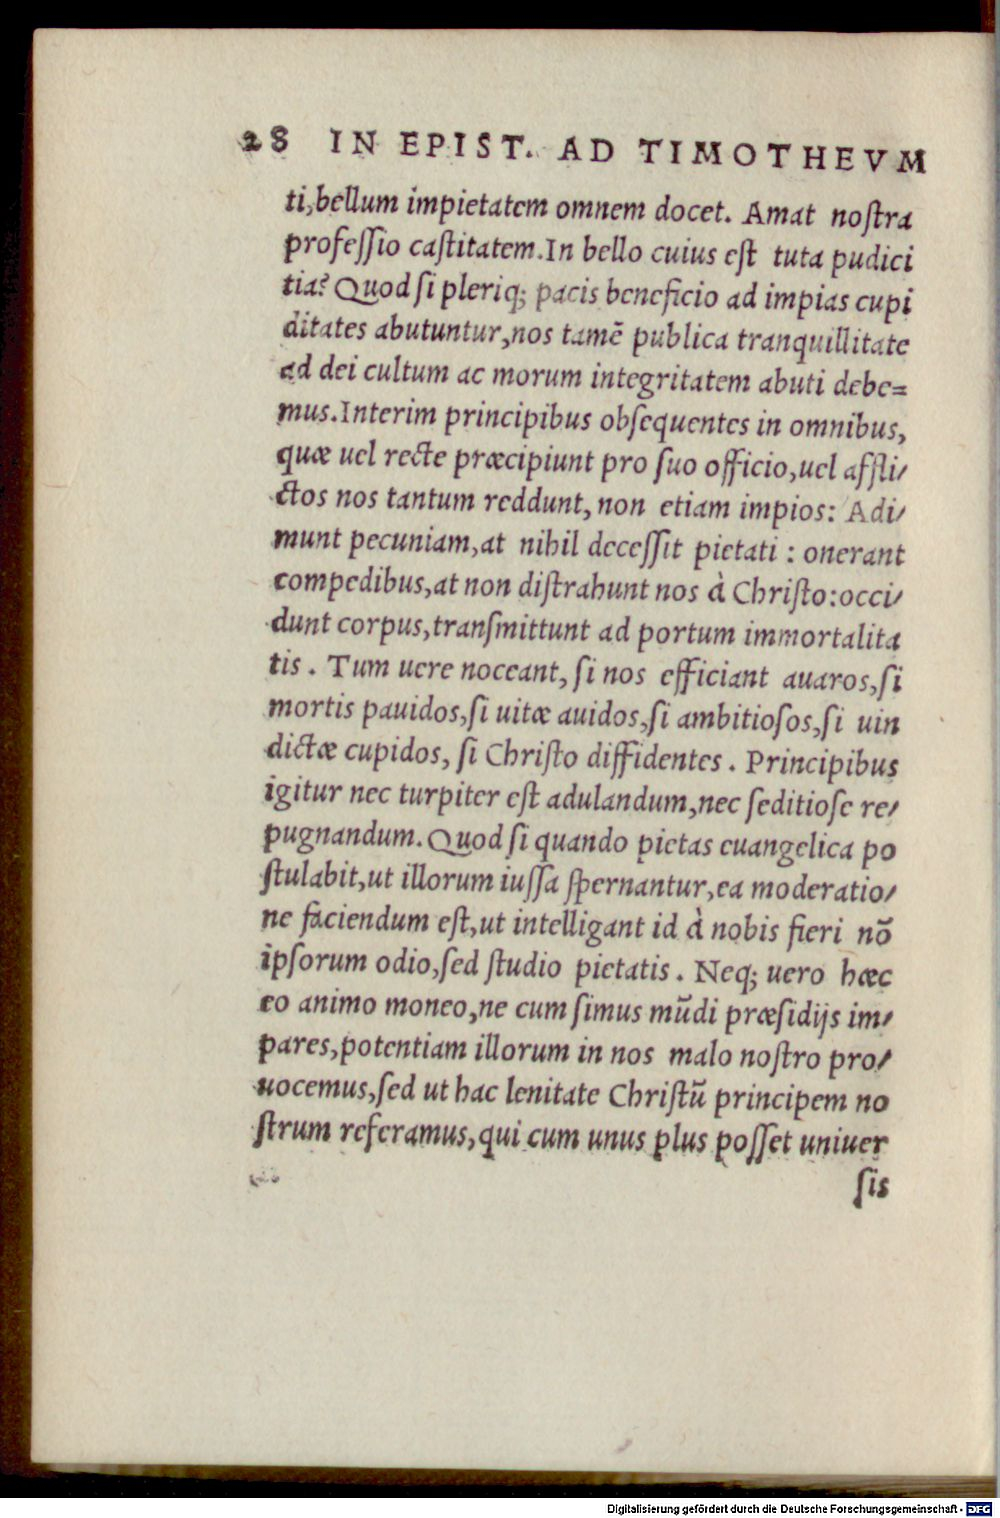 28 IN EPIST. AD TIMOTHEVM
ti,bellum impietatem omnem docet. Amat noſtra
profeſſio caſtitatem.In bello cuius eſt tuta pudici
tia? Quod ſi pleriq; pacis beneficio ad impias cupi
ditates abutuntur,nos tamẽ publica tranquillitate
ad dei cultum ac morum integritatem abuti debe=
mus.Interim principibus obſequentes in omnibus,
quæ uel recte præcipiunt pro ſuo officio,uel affli/
ctos nos tantum reddunt, non etiam impios: Adi/
munt pecuniam,at nihil deceſſit pietati : onerant
compedibus,at non diſtrahunt nos à Chriſto:occi/
dunt corpus,tranſmittunt ad portum immortalita
tis . Tum uere noceant, ſi nos efficiant auaros,ſi
mortis pauidos,ſi uitæ auidos,ſi ambitioſos,ſi uin
dictæ cupidos, ſi Chriſto diffidentes . Principibus
igitur nec turpiter eſt adulandum,nec ſeditioſe re/
pugnandum. Quod ſi quando pietas euangelica po
ſtulabit,ut illorum iuſſa ſpernantur,ea moderatio/
ne faciendum eſt,ut intelligant id à nobis fieri nõ
ipſorum odio,ſed ſtudio pietatis . Neq; uero hæc
eo animo moneo,ne cum ſimus mũdi præſidijs im/
pares,potentiam illorum in nos malo noſtro pro/
uocemus,ſed ut hac lenitate Chriſtũ principem no
ſtrum referamus,qui cum unus plus poſſet uniuer
ſis
Digitalisierung gefördert durch die Deutsche Forschungsgemeinschaft - DFG